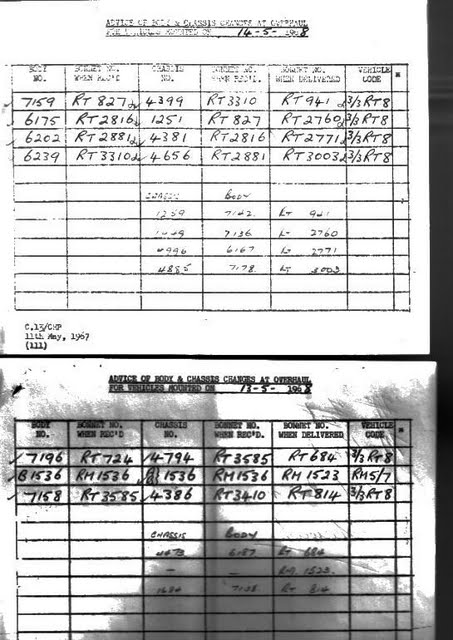 ADVICE OF BODY & CHASSIS CHANGES AT OVERHAUL
FOR VEHICLES MOUNTED ON 14-5- 1968
BODY NO. BONNET NO. WHEN REC'D. CHASSIS NO. BONNET NO. WHEN REC'D. BONNET NO. WHEN DELIVERED VEHICLE CODE *
7159 RT 827 4399 RT3310 RT 941 3/3RT8
6175 RT2816 1251 RT 827 RT2760 3/3RT8
6202 RT2881 4381 RT2816 RT2771 3/3RT8
6239 RT3310 4656 RT2881 RT3003 3/3RT8
CHASSIS BODY
1259 7142 RT 941
7136 2760
4996 6167 2771
4885 7178 RT 3003
C.13/CHP
11th May, 1967
(111)
ADVICE OF BODY & CHASSIS CHANGES AT OVERHAUL
FOR VEHICLES MOUNTED ON 13-5- 1968
BODY NO. BONNET NO. WHEN REC'D. CHASSIS NO. BONNET NO. WHEN REC'D. BONNET NO. WHEN DELIVERED VEHICLE CODE *
7196 RT 724 4794 RT3585 RT684 3/3RT8
B1536 RM1536 1536 RM1536 RM1523 RM5/7
7158 RT3585 4386 RT3410 RT 814 3/3RT8
CHASSIS BODY
4473 6187 RT 684
— — RM 1523
1684 RT 814